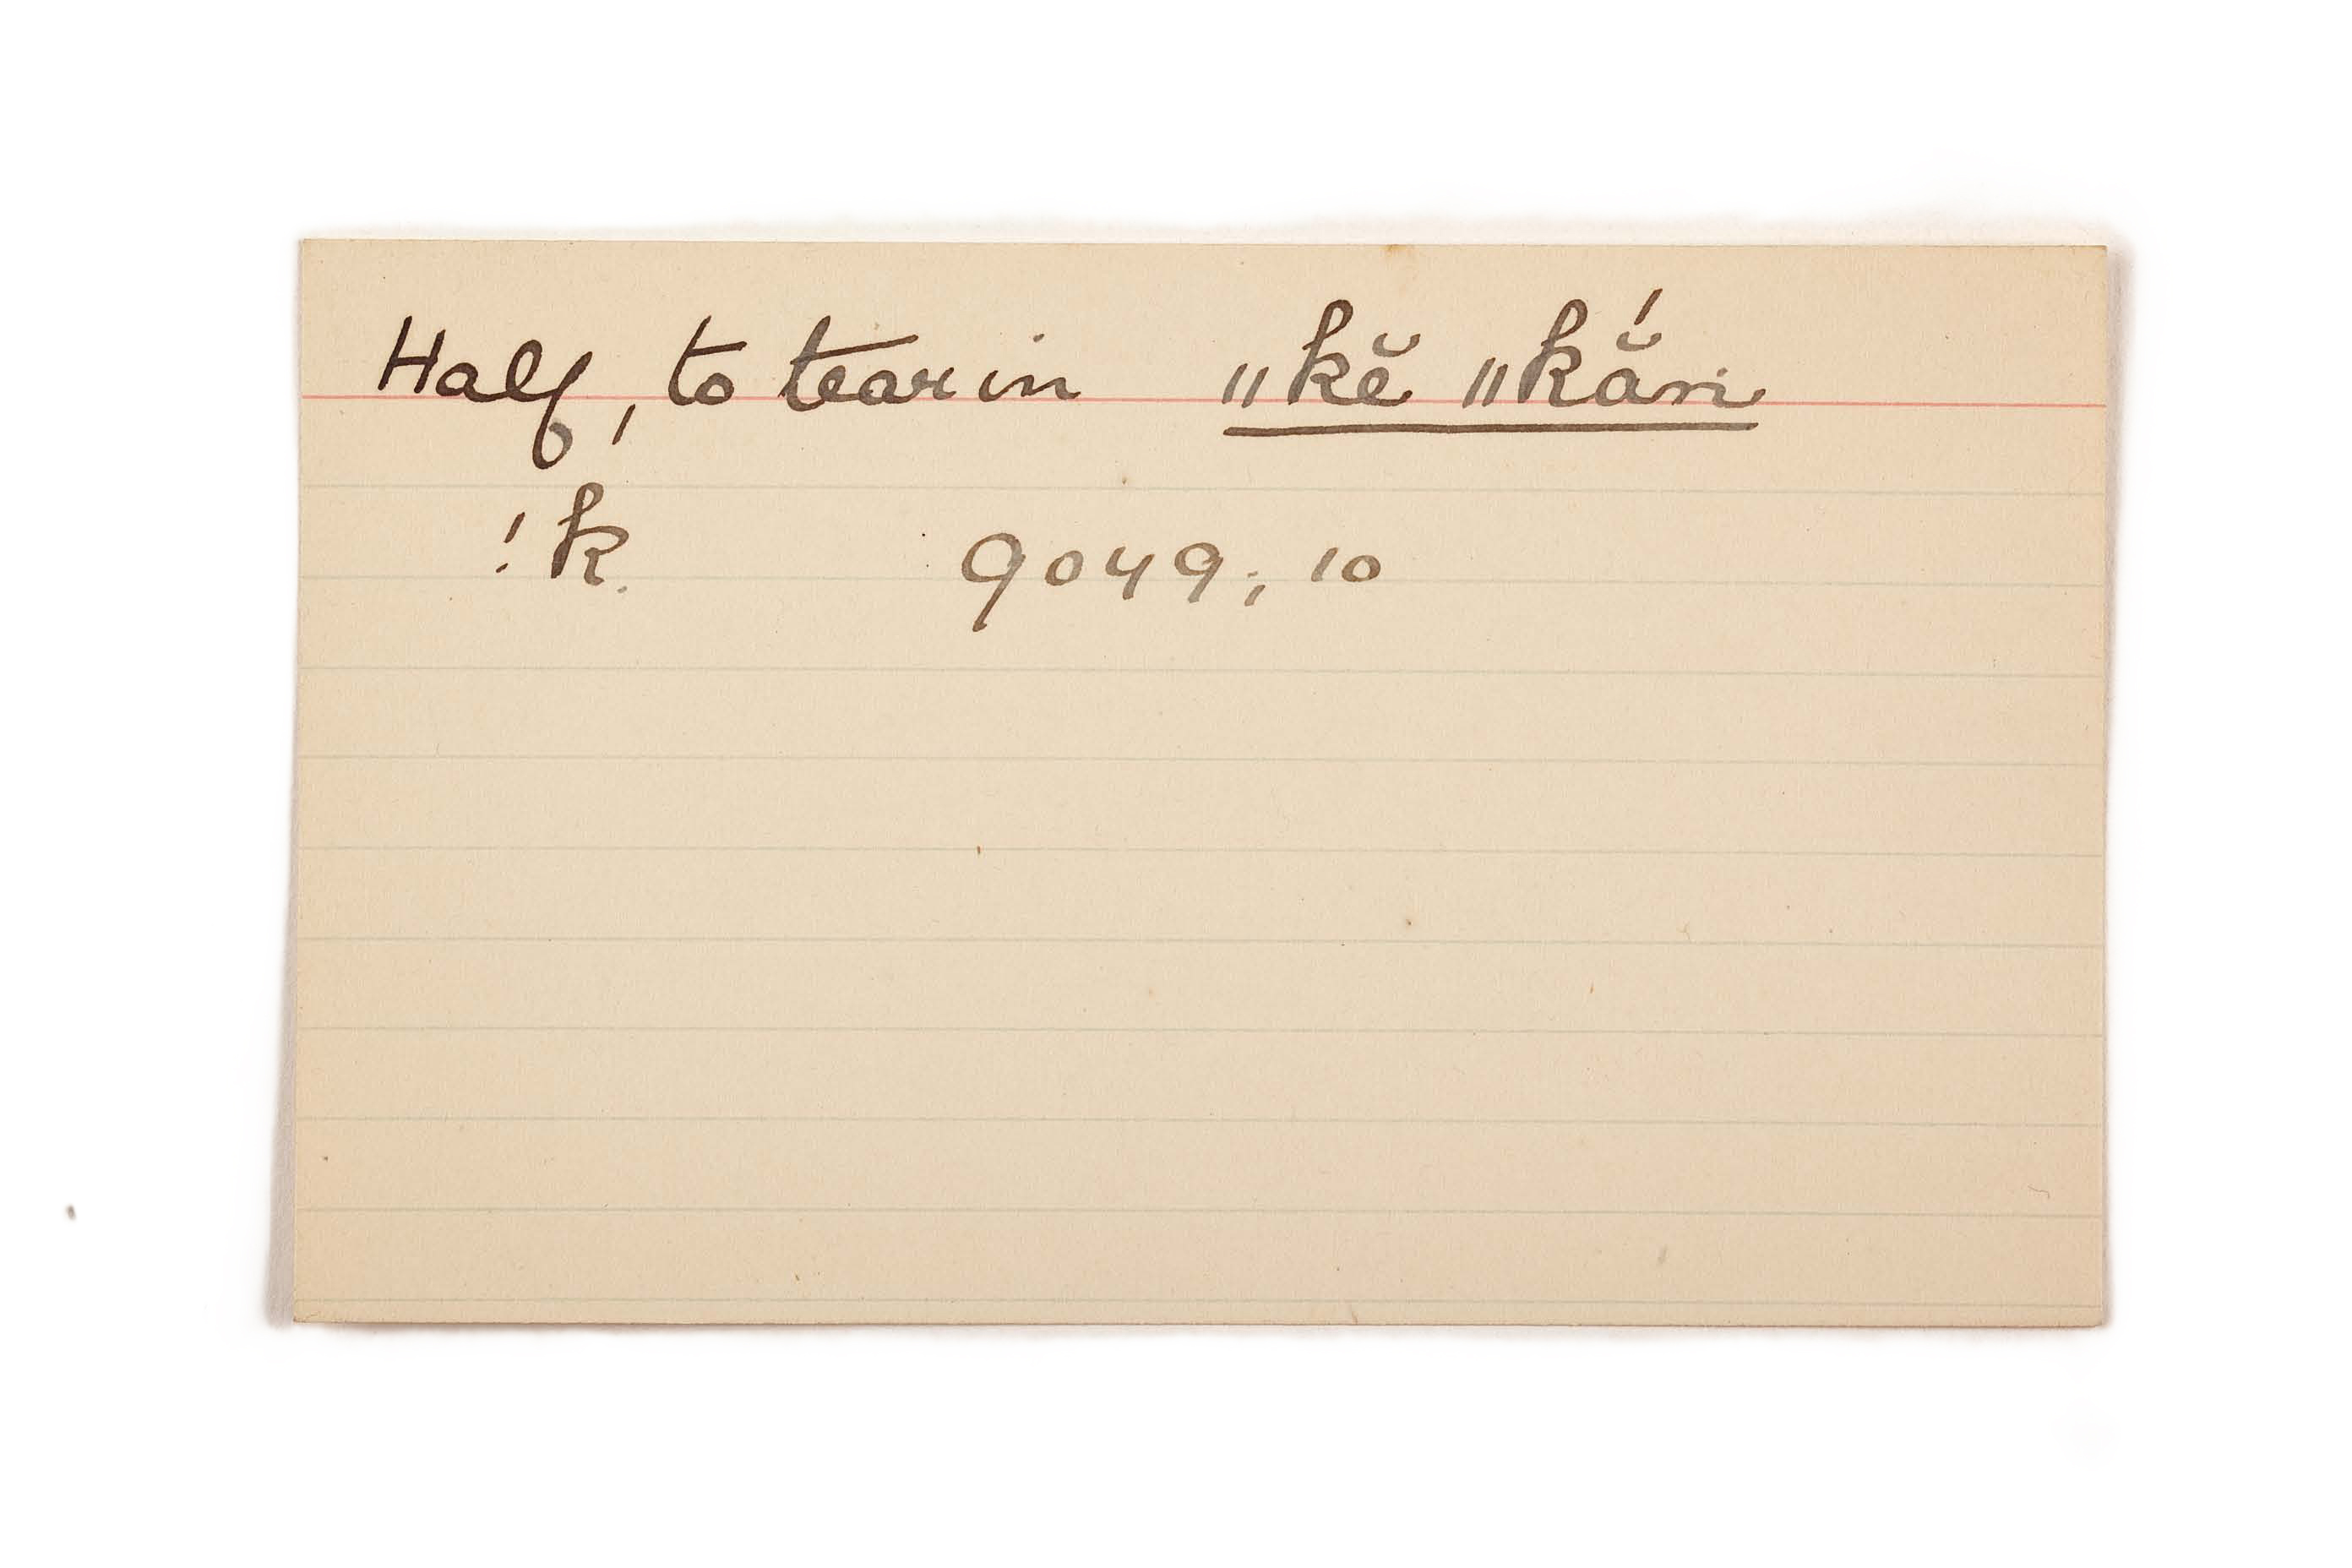 Half, to tear in ǁkĕ ǁkắri
!k. 9049; 10